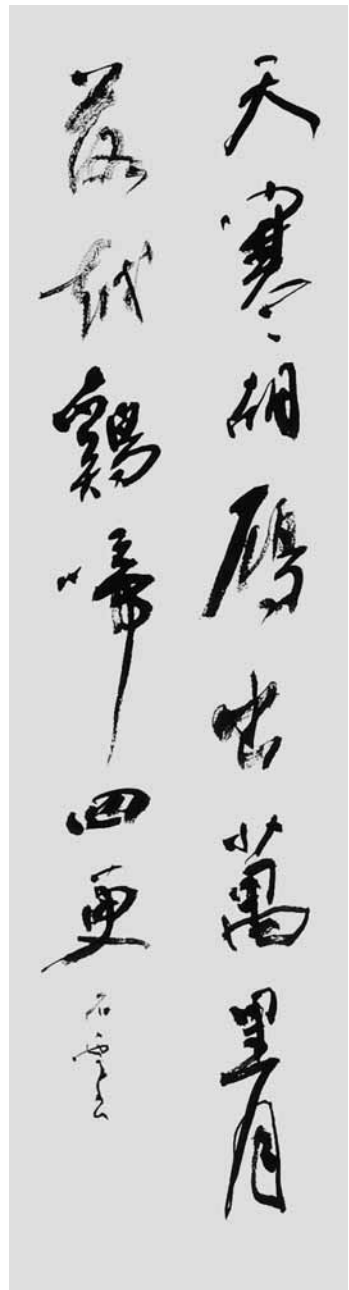 天寒胡雁出萬里月
落越鷄啼四更
石雲